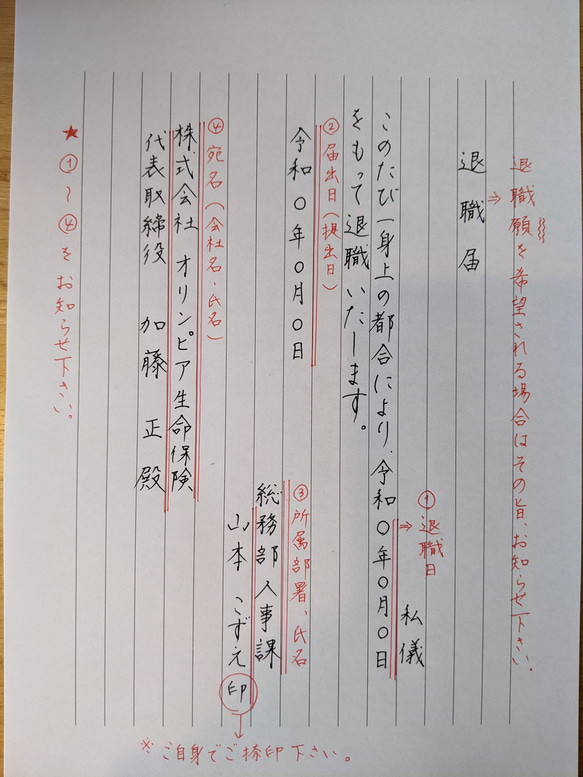 退職願を希望される場合はその旨、お知らせ下さい。
⇒
退職届
①退職日
⇒
私儀
このたび一身上の都合により、令和〇年〇月〇日
をもって退職いたします。
②届出日(提出日)
令和〇年〇月〇日
③所属部署、氏名
総務部人事課
山本こずえ 印
※ご自身でご捺印下さい。
④宛名(会社名・氏名)
株式会社 オリンピア生命保険
代表取締役 加藤 正殿
★①~④をお知らせ下さい。